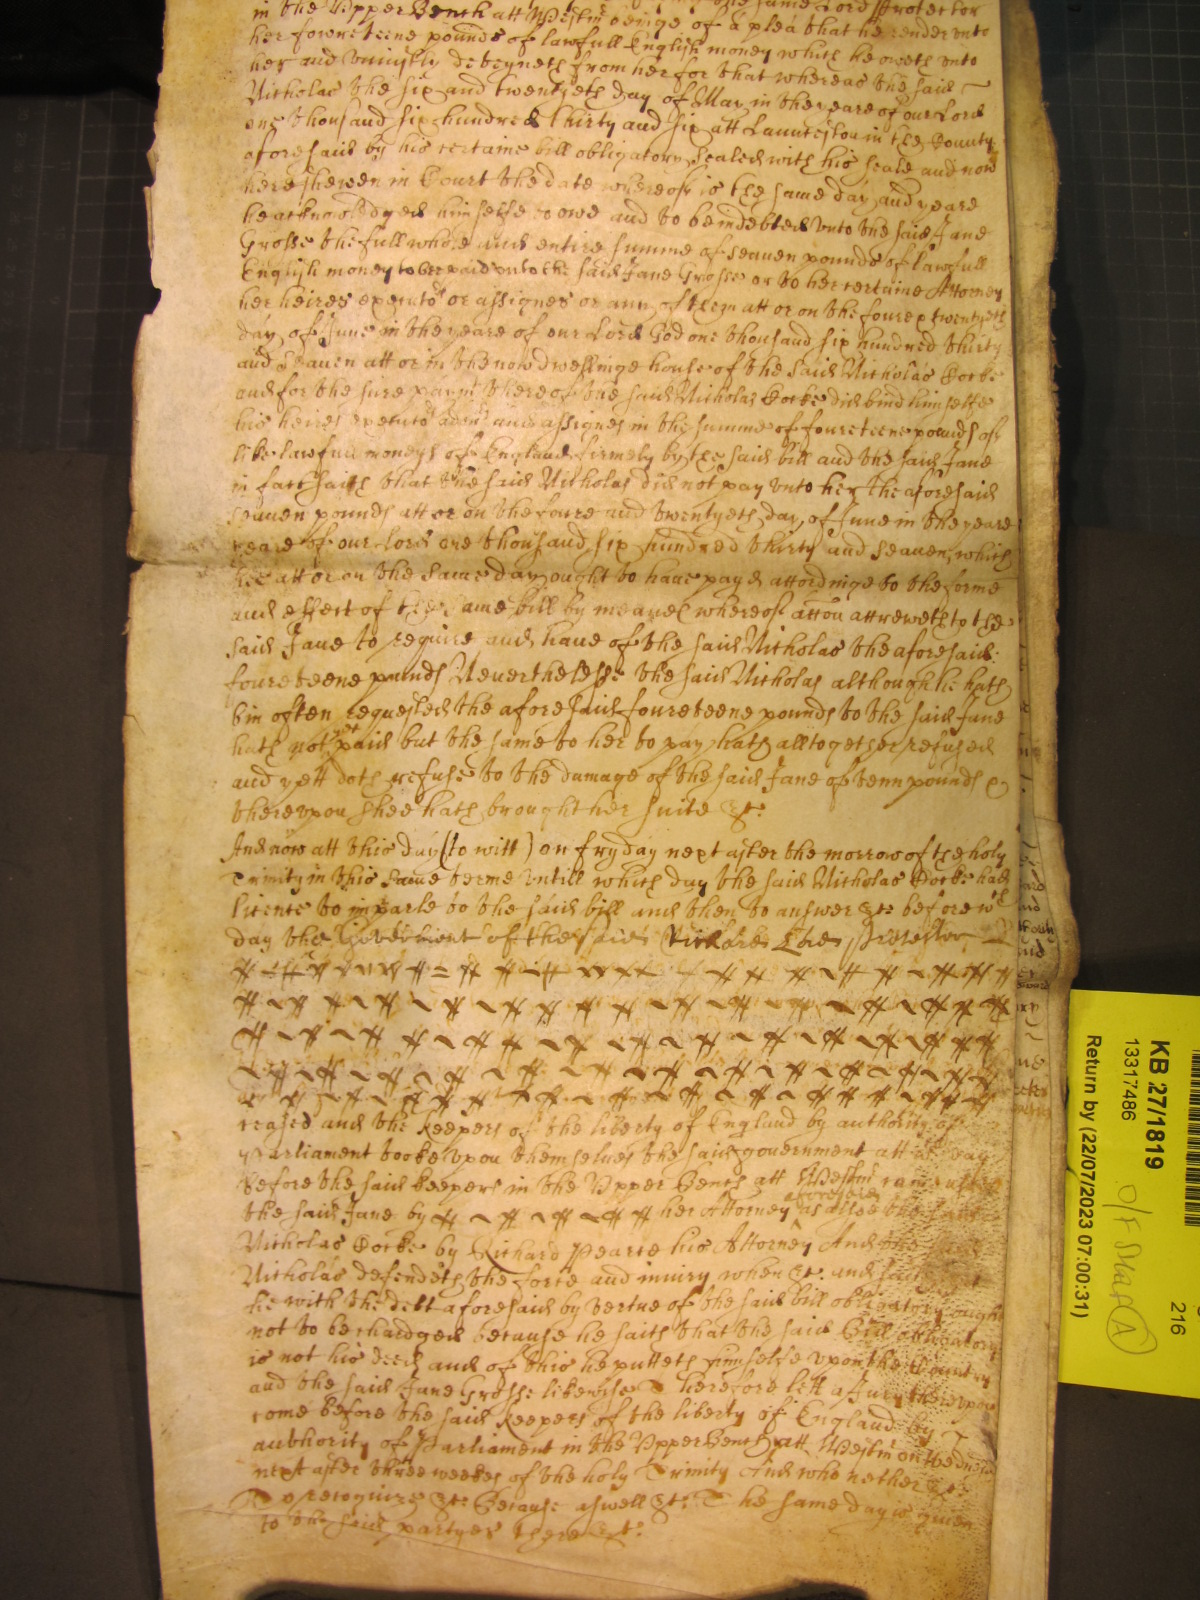 in the Upper Bench att Westmr beinge of a plea that he render unto
her fowreteene pounds of lawfull English money which he oweth unto
her and uniustly deteyneth from her for that whereas the said
Nicholas the six and twentyeth day of May in the yeare of our Lord
one thousand six hundred thirty and six att Launceston in the County
aforesaid by his certaine bill obligatory sealed with his seale and now
here shewen in Court the date whereof is the same day and yeare
he acknowledged himselfe to owe and to be indebted unto the said Jane
Grosse the full whole and entire summe of seaven pounds of lawfull
English money to bee paid unto the said Jane Grosse or to her certaine Attorney
her heires executors or assignes or any of them att or on the foure & twentyeth
day of June in the yeare of our Lord God one thousand six hundred thirty
and seaven att or in the now dwellinge house of the said Nicholas Cocke
and for the sure paymt thereof the said Nicholas Cocke did bind himselfe
his heires executors admrs and assignes in the summe of foureteene pounds of
like lawfull moneys of England firmely by the said bill and the said Jane
in fact saith that the said Nicholas did not pay unto her the aforesaid
seaven pounds att or on the foure and twentyeth day of June in the yeare
yeare of our Lord one thousand six hundred thirty and seaven which
hee att or on the same day ought to have payd accordinge to the forme
and effect of the same bill by meanes whereof accon accreweth to the
said Jane to require and have of the said Nicholas the aforesaid
foureteene pounds Neverthelesse the said Nicholas although he hath
bin often requested the aforesaid foureteene pounds to the said Jane
hath not yet paid but the same to her to pay hath alltogether refused
and yett doth refuse to the damage of the said Jane of tenn pounds &
thereupon shee hath brought her suite &c
And now att this day (to witt) on fryday next after the morrow of the holy
Trinity in this same terme untill which day the said Nicholas Cocke had
licence to imparle to the said bill and then to answer &c before wch
day the Goverment of the said Richard Lord Protector
ceased and the keepers of the liberty of England by authority of
Parliament tooke upon themselves the said government att which day
before the said keepers in the Upper Bench att Westmr came as well
the said Jane by her Attorney aforesaid as allsoe the said
Nicholas Cocke by Richard Pearce his Attorney And the
Nicholas defendeth the force and iniury when &c and saith that
he with the debt aforesaid by vertue of the said bill obligatory ought
not to be chardged because he saith that the said Bill obligatory
is not his deed and of this he putteth himselfe upon the Country
and the said Jane Grosse likewise Therefore lett a Jury thereupon
come before the said keepers of the liberty of England by
authority of Parliament in the Upper Bench att Westmr on Wednesday
next after three weekes of the holy Trinity And who nether &c
To recognize &c Because aswell &c The same day is given
to the said partyes there &c
KB 27/1819
13317486
Return by (22/07/2023 07:00:31)
216
O/F Staff (A)